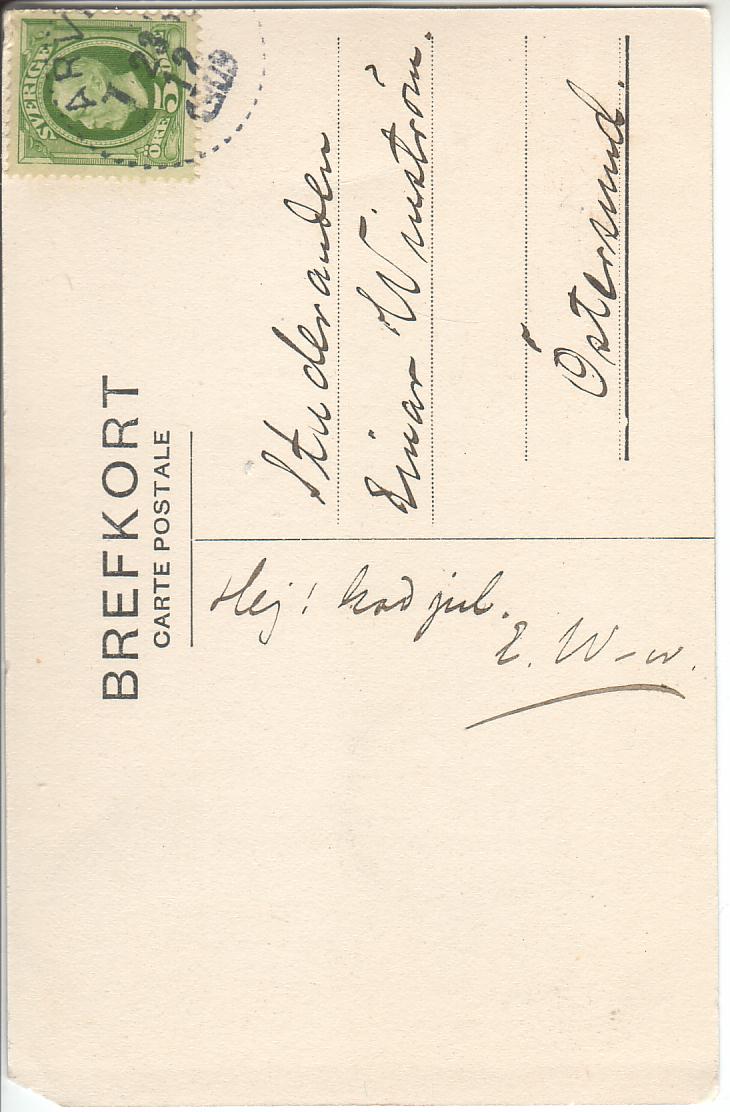 BREFKORT
CARTE POSTALE
SVERIGE
5
ÖRE
23
12
Studeranden
Einar Winström.
Östersund.
Hej! God jul.
E. W-m.